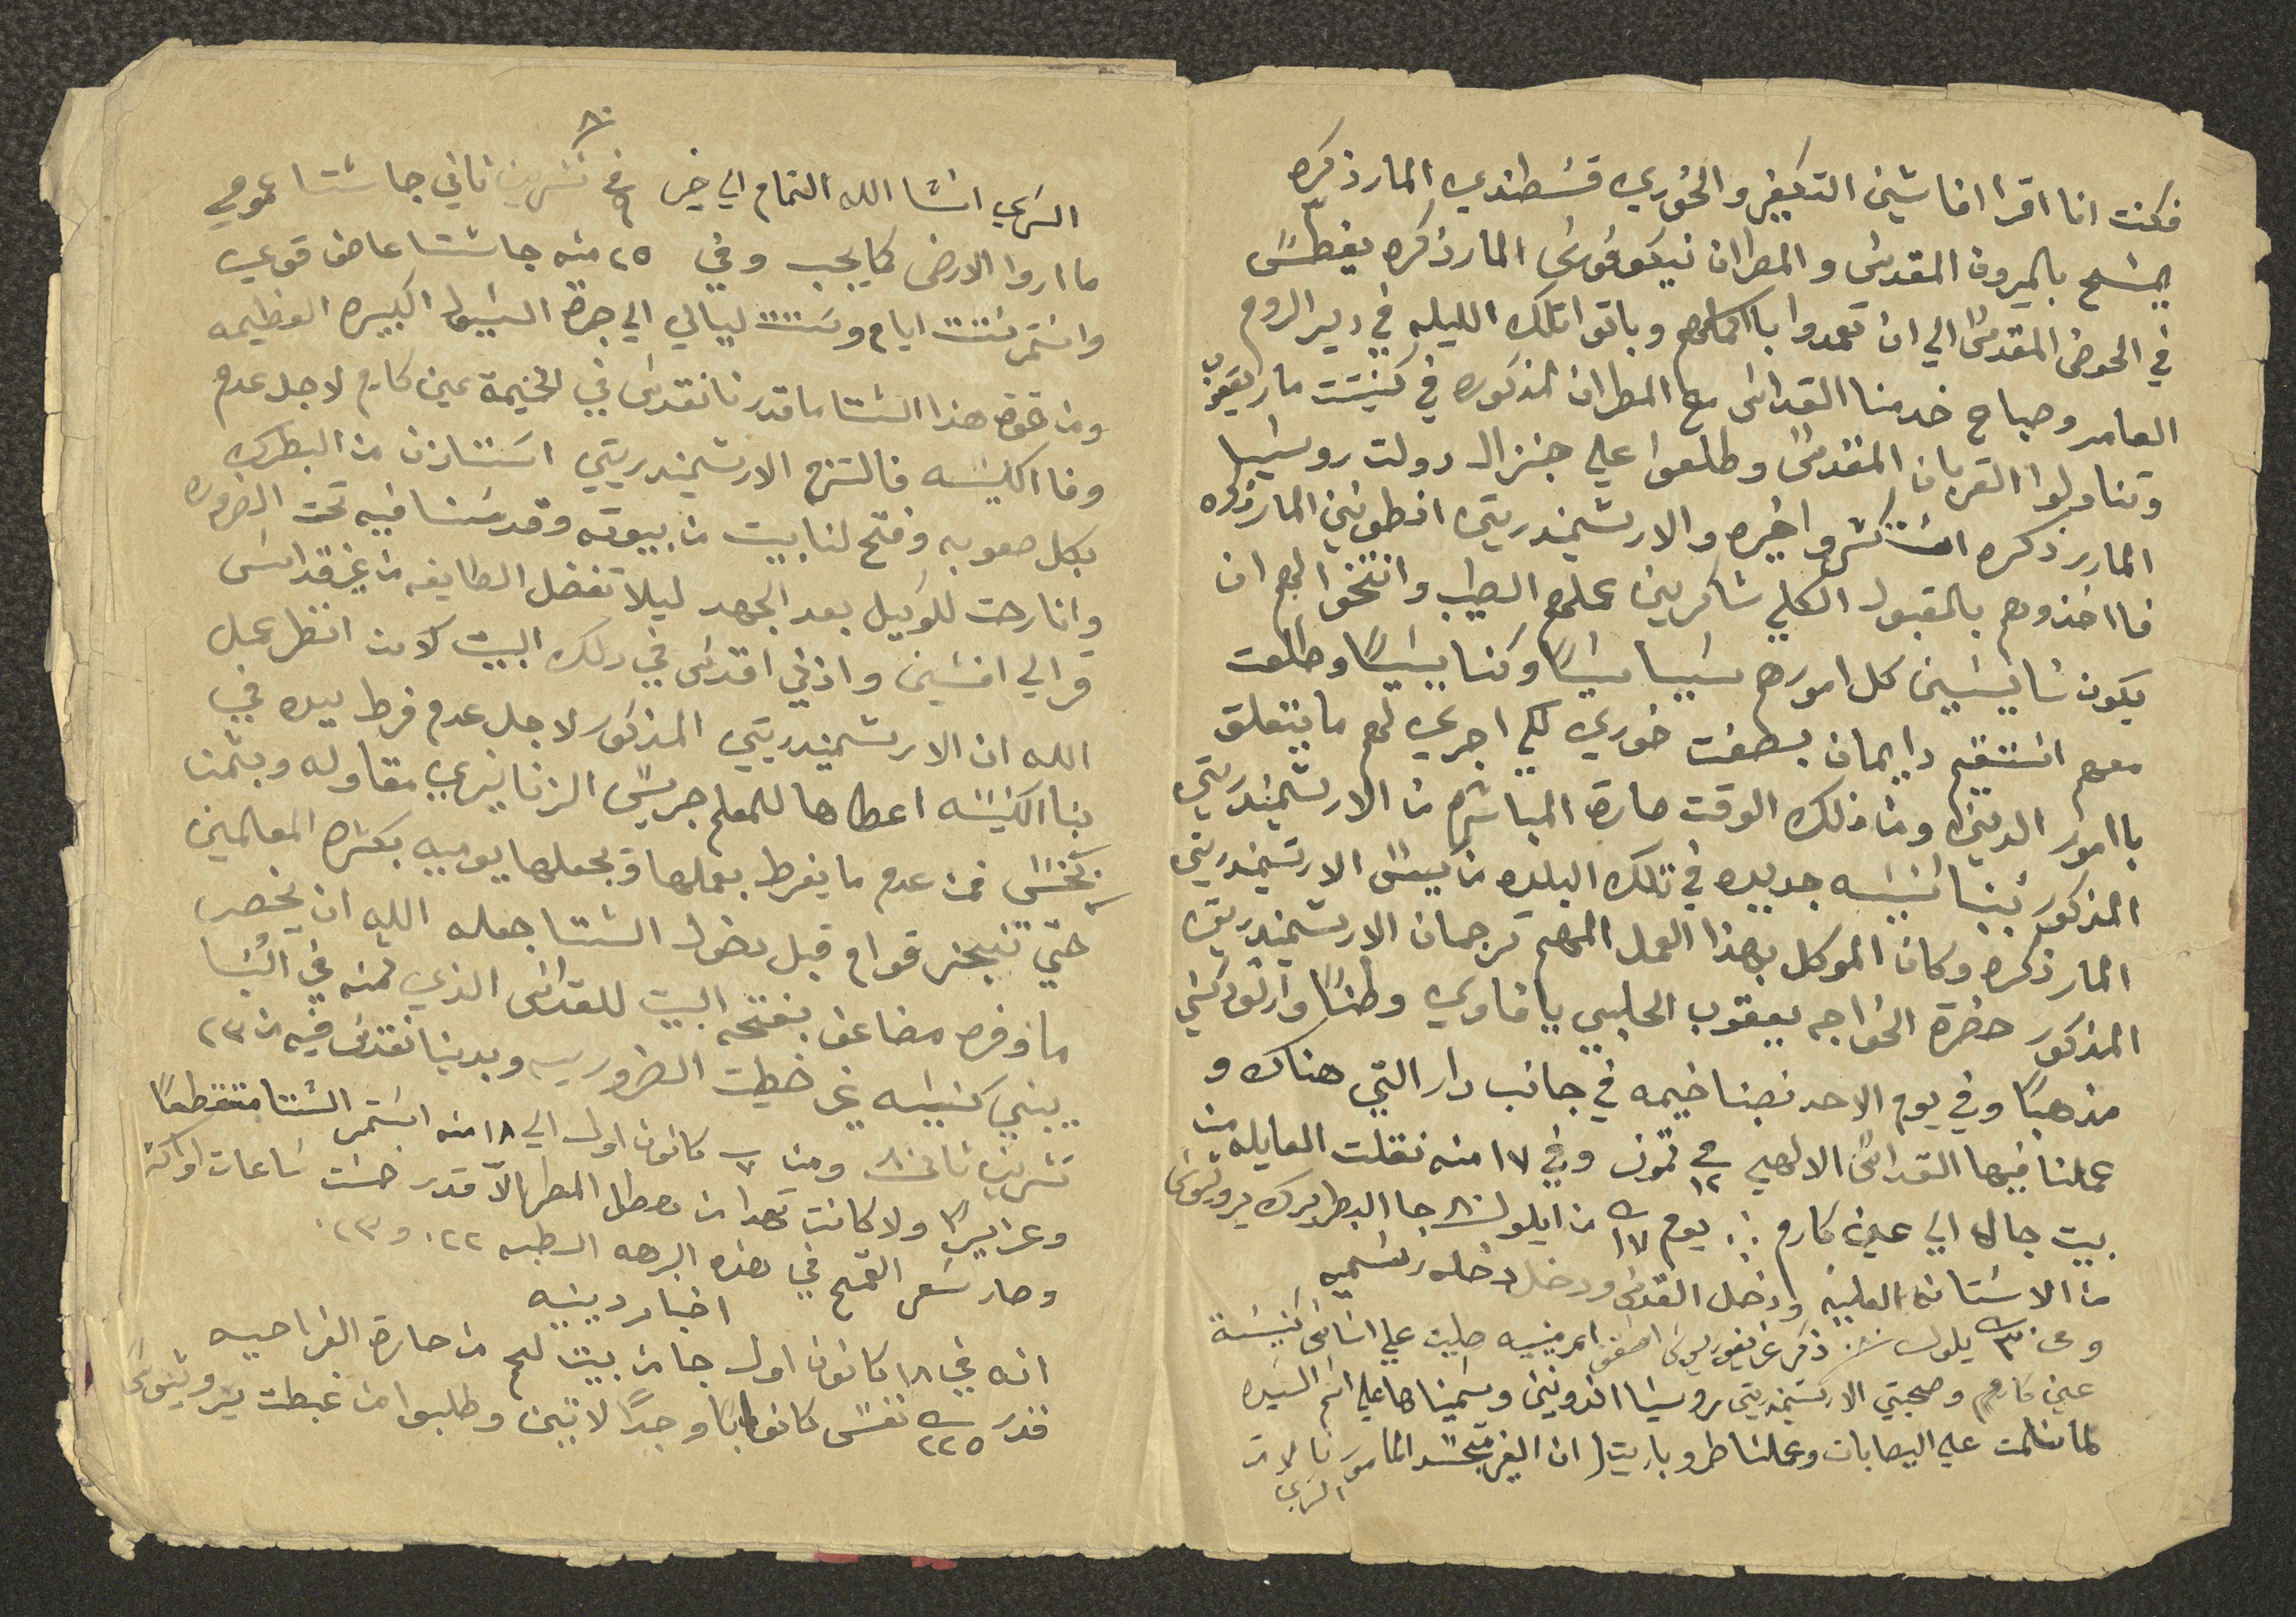 فكنت انا اقرا افاشين التكفير والخوري قسطندي المار ذكره
يمسح بالميرون المقدس والمطران نيكوفورس المار ذكره يغطس
في الحوض المقدس الي ان تعمدوا باكملهم وباتوا تلك الليله في دير الروم
العامر وصباح خدمنا القداس مع المطران المذكوره في كنيست مار يعقوب
وتناولوا القربان المقدس وطلعوا علي جنزال دولت روسيا
المارر ذكره استكثروا خيره والارشيمندريتي انطونين المار ذكره
فااخذوهم بالقبول الكلي شاكرين عملهم الطيب وانتخوا لهم ان
يكون سايسين كل امورهم سياسيًا وكنايسيًا وطلعت
معهم استقيم دايمان بصفت خوري لكي اجري لهم ما يتعلق
باامور الدينيه ومن ذلك الوقت صارة المباشره من الارشيمندريتي
المذكور ببنا كنيسه جديده في تلك البلده من كيس الارشيمندريتي
المار ذكره وكان الموكل بهذا العمل المهم ترجمان الارشيمندريتي
المذكور حضرة الخواجه يعقوب الحلبي يافاوي وطنًا وارتودكسي
مذهبًا وفي يوم الاحد نصبنا خيمه في جانب دار التي هناك و
عملنا فيها القداس الالهي في ١٢ تموز وفي ١٧ منه نقلت العايله من
بيت جالا الي عين كارم ∴ يوم ١٧ من ايلول جا البطريرك يروثيوس
من الاستانه العليه ودخل القدس ودخل دخله رسميه
عين كارم وصحبتي الارشيمندريتي روسيا انزونين وسميناها علي اسم السيده
لما سلمت علي اليصابات وعملنا طروباريت
الزكي
٨٠
الزكي انشا الله التمام الي خير في ٩ تشرين تاني جا شتا عمومي
ما اروا الارض كما يجب وفي ٢٥ منه جا شتا عاصف قوي
واستمر ستت ايام وستت ليالي الي جرة السيول الكبيره العظيمه
ومن قوة هذا الشتا ما قدرنا نقدس في الخيمة عين كارم لاجل عدم
وفا الكنيسه فالتزم الارشيمندريتي استناذن من البطرك
بكل صعوبه وفتح لنا بيت من بيوته وقدسنا فيه تحت الضروره
وانا رحت للوكيل بعد الجهد ليلا تفضل الطايفه من غير قداس
قرالي افشين واذني اقدس في دلك البيت لاكن انظر عمل
الله ان الارشمندريتي المذكور لاجل عدم فرط يده في
بنا الكنيسه اعطاها للمعلم جريس الزنانيري مقاوله وبتمن
بخس فمن عدم ما يفرط بعملها ويجعلها يوميه بكثره المعالمين
حتي تنجز قوام قبل دخول الشتا جعله الله ان يخصر
ما وفره مضاعف بفتحه البيت للقداس الذي تمنه في البنا
يبني كنيسه غير خطيت الضروريه وبدينا نقدس فيه من ٢٣
تشرين تاني ومن ٧ كانون اول الي ١٨ منه استمر الشتا متقطعًا
وغزيرًا ولا كانت تهدا من هطل المطر الا قدر خمست ساعات او اكثر
وصار سعر القمح في هذه البرهه الطبه ٢٢ و ٢٣
اخبار دينيه
انه في ١٨ كانون اول جا من بيت لحم من حارة الفراحيه
قدر ٢٢٥ نفس كانوا ابًا وجدًا لاتين وطلبوا من غبطت يروثيوس